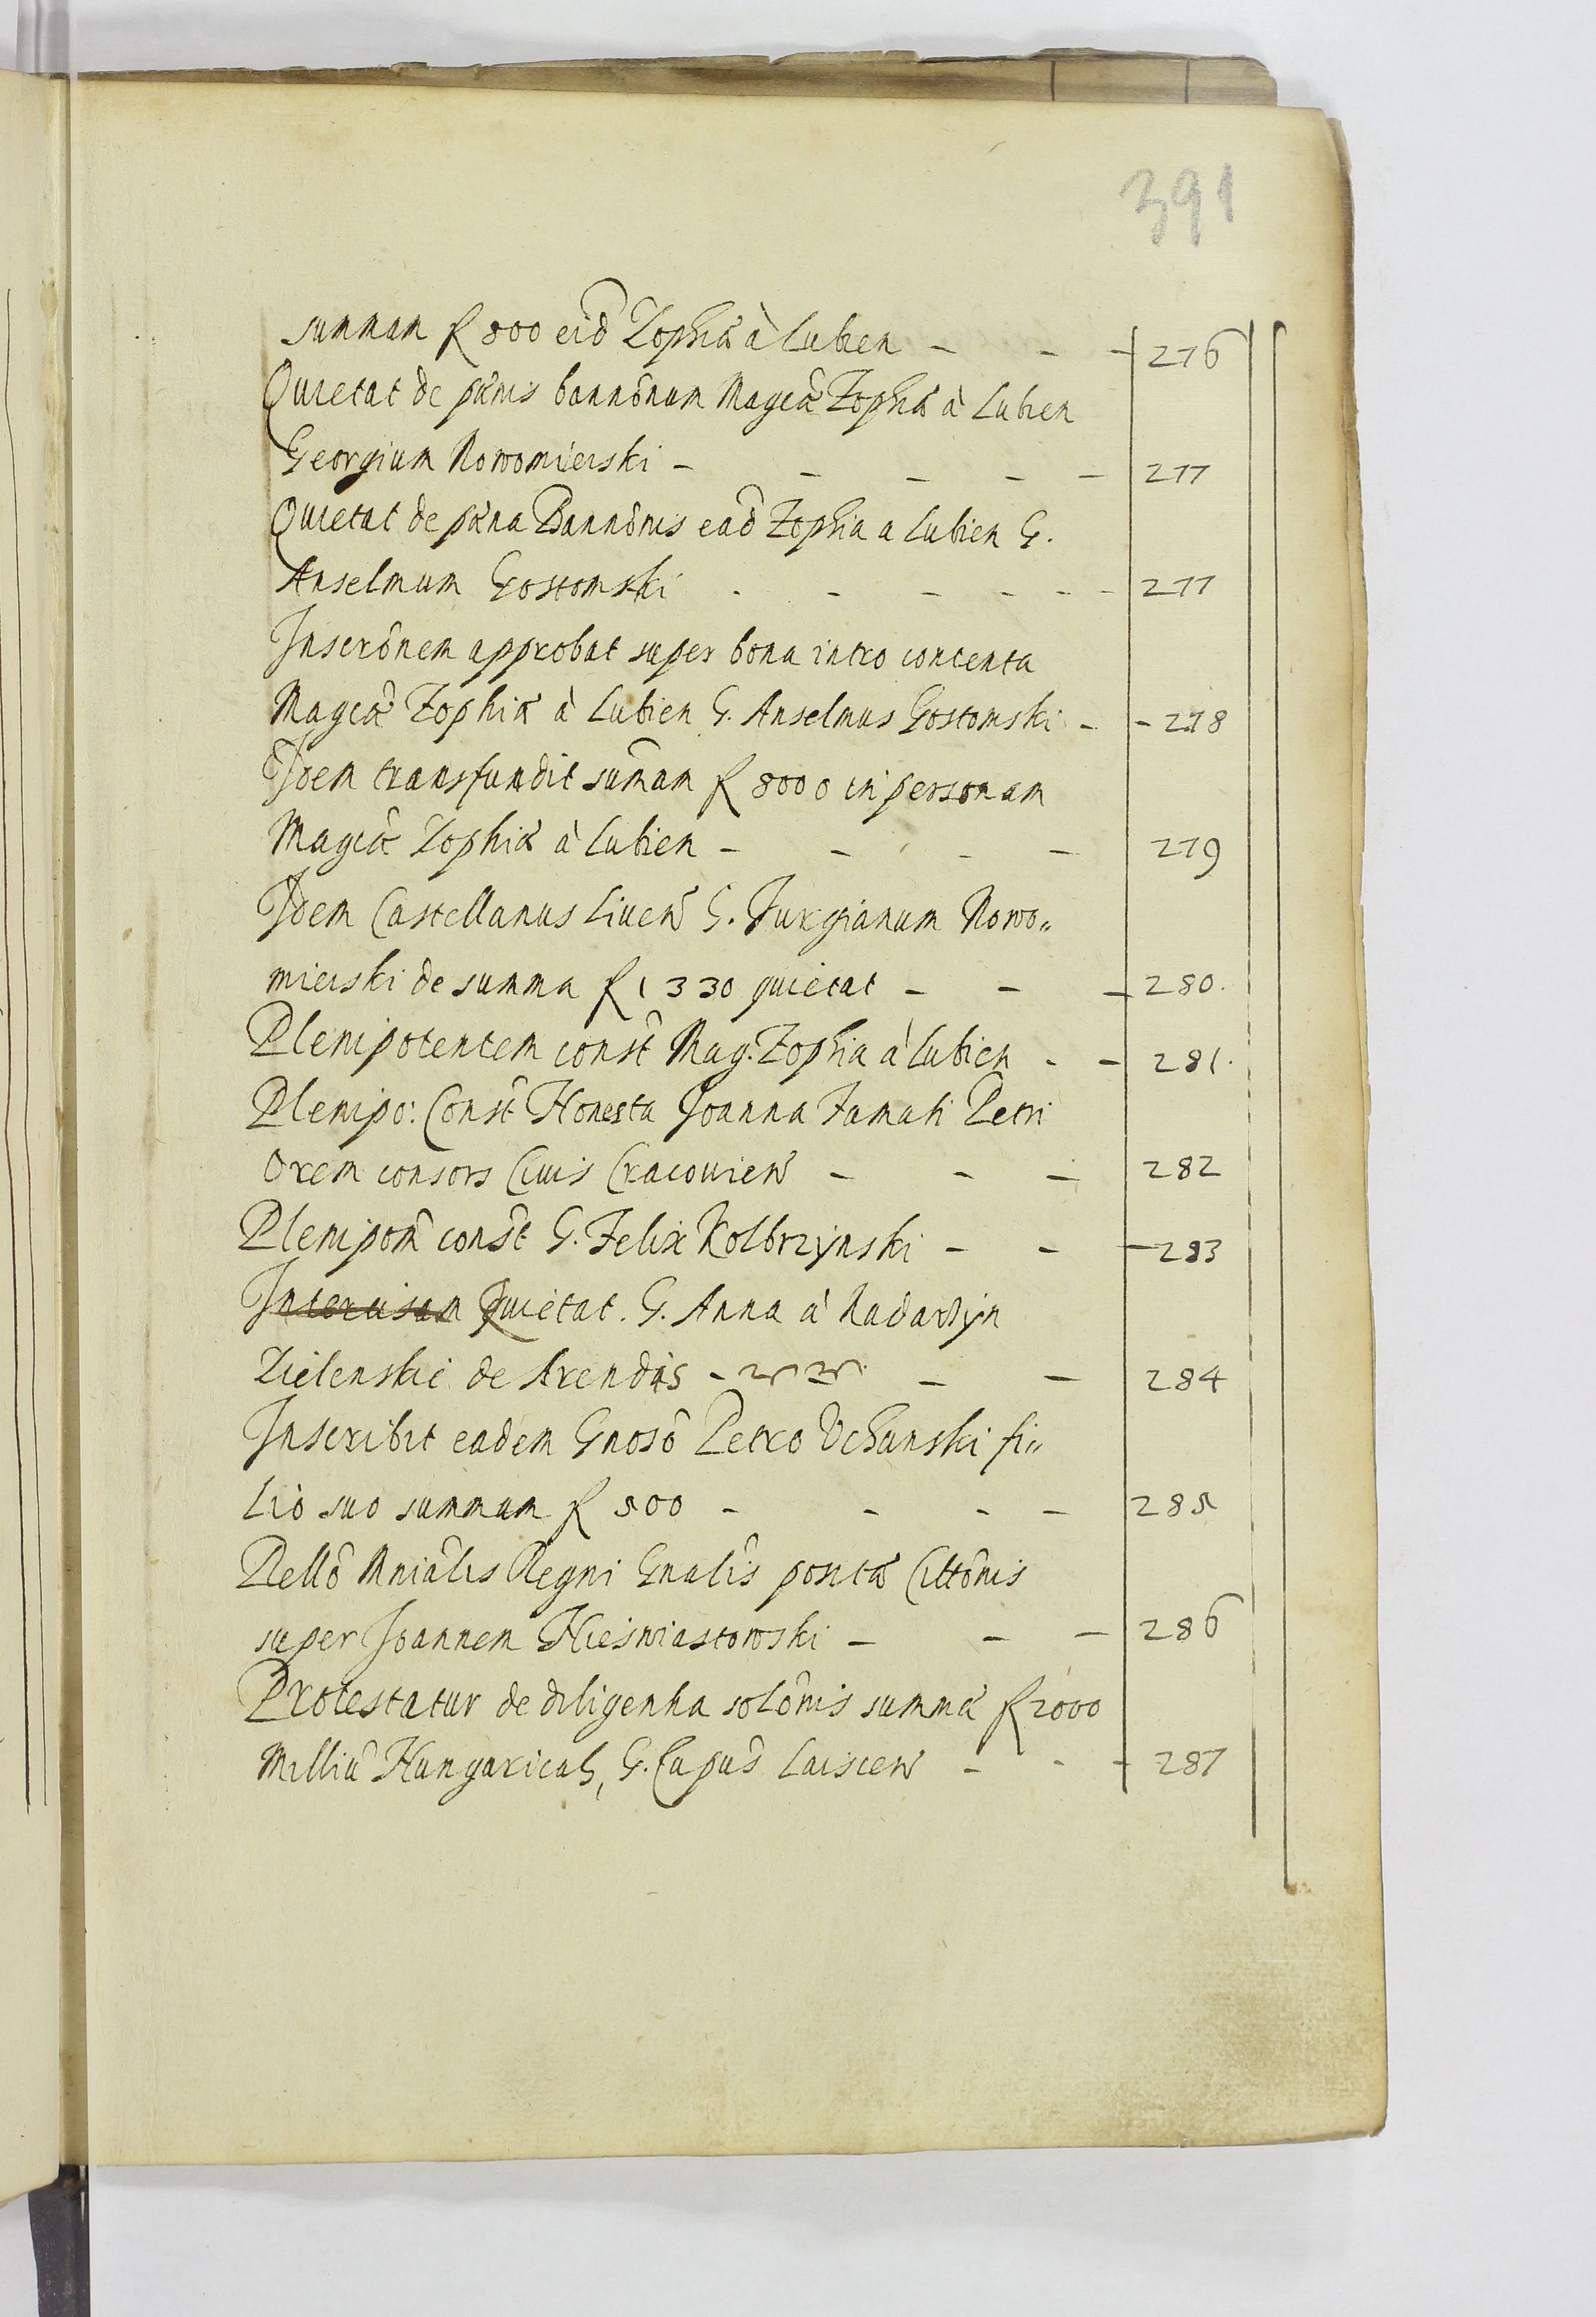 391
summam f 800 eid Zophiæ à Lubien - - - 276
Quietat de pænis bannonum Magcâ Zophia à Lubien
Georgium Nowomierski - - - - - 277
Quietat de pæna Bannonis ead Zophia a Lubien G.
Anselmum Gostomski - - - - - - 277
Inscrōnem approbat super bona intro contenta
Magcæ Zophiæ à Lubien G. Anselmus Gostomski - - 278
Idem transfundit sumam f 8000 in personam
Magcæ Zophiæ à Lubien - - - - 279
Idem Castellanus Liuen G. Jurgianum Nowo„
mierski de summa f 1330 quietat - - - 280.
Plenipotentem const Mag. Zophia à Lubien - - 281.
Plenipo: Const Honesta Joanna Famati Petri
Orem consors Ciuis Cracouien - - - 282
Plenipom const G. Felix Kolbrzynski - - - 283
Intercisam Quietat. G. Anna à Nadarzyn
Zielenskie de Arendis - - - 284
Inscribit eadem Gnoso Petro Vchanski fi„
lio suo summam f 500 - - - - 285
Pello Mnialis Regni Gnalis posita Cittonis
super Joannem Hiesmiastowski - - - 286
Protestatur de diligentia solonis summæ f 2000
Milliu Hungarical, G. Capus Laiscen - - - 287